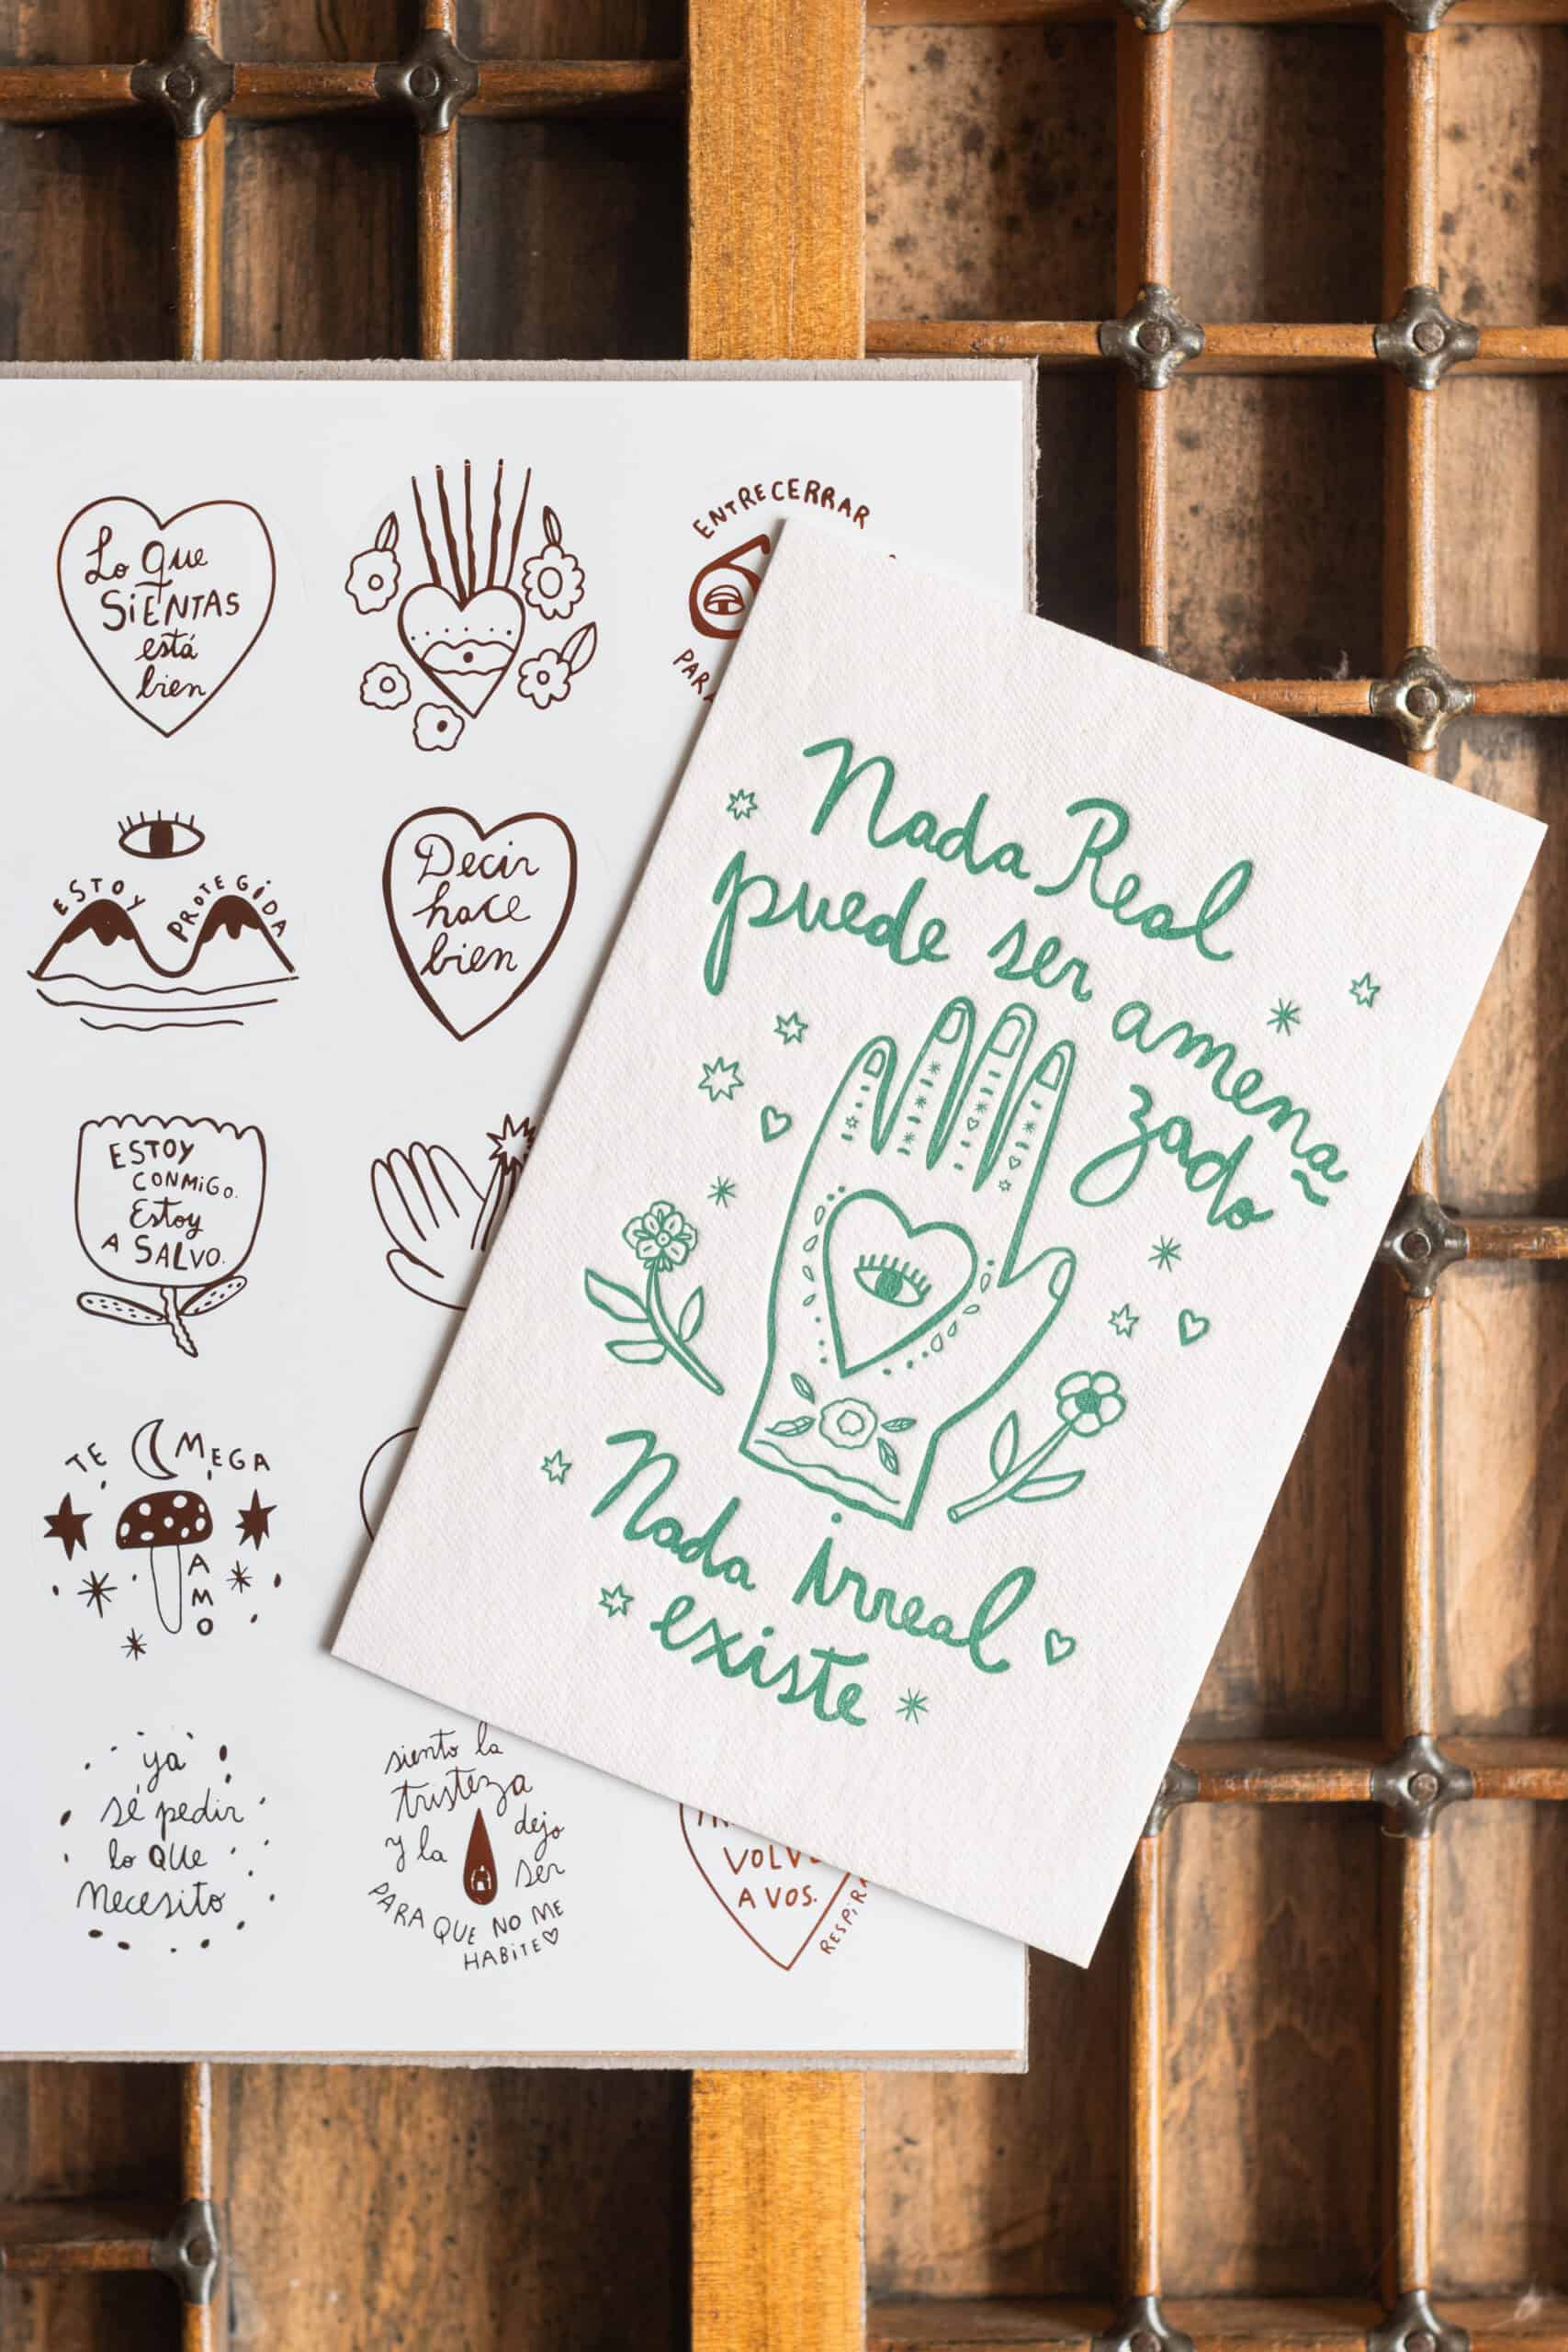 Lo Que
SiENTAS
está
bien
ENTRECERRAR
ESTOY PROTEGiDA
Decir
hace
bien
ESTOY
CONMiGO.
Estoy
A SALVO.
TE MEGA
AMO
ya
sé pedir
lo QUe
necesito
siento la
tristeza
y la dejo
ser
PARA QUE NO ME
HABiTE
A VOS.
Nada Real
puede ser amena
zado
Nada irreal
existe